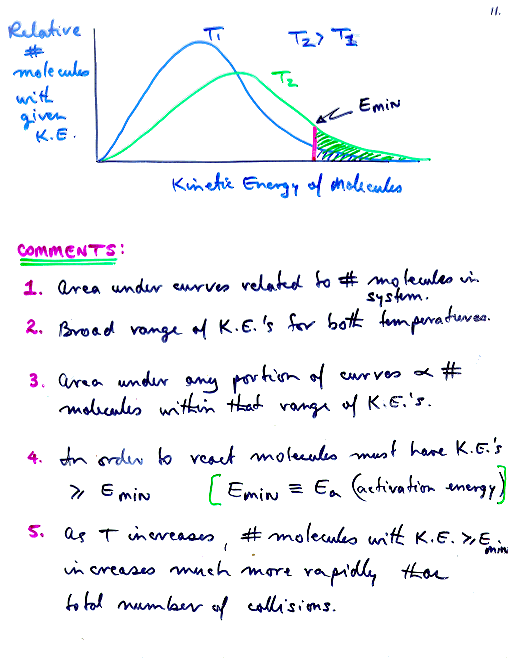 11.
Relative
#
molecules
with
given
K.E.
T1
T2 > T1
T2
EMIN
Kinetic Energy of Molecules
COMMENTS:
1. Area under curves related to # molecules in
system.
2. Broad range of K.E.'s for both temperatures.
3. Area under any portion of curves ∝ #
molecules within that range of K.E.'s.
4. In order to react molecules must have K.E.'s
≥ EMIN [EMIN ≡ Ea (activation energy)]
5. As T increases, # molecules with K.E. ≥ Emin
increases much more rapidly than
total number of collisions.